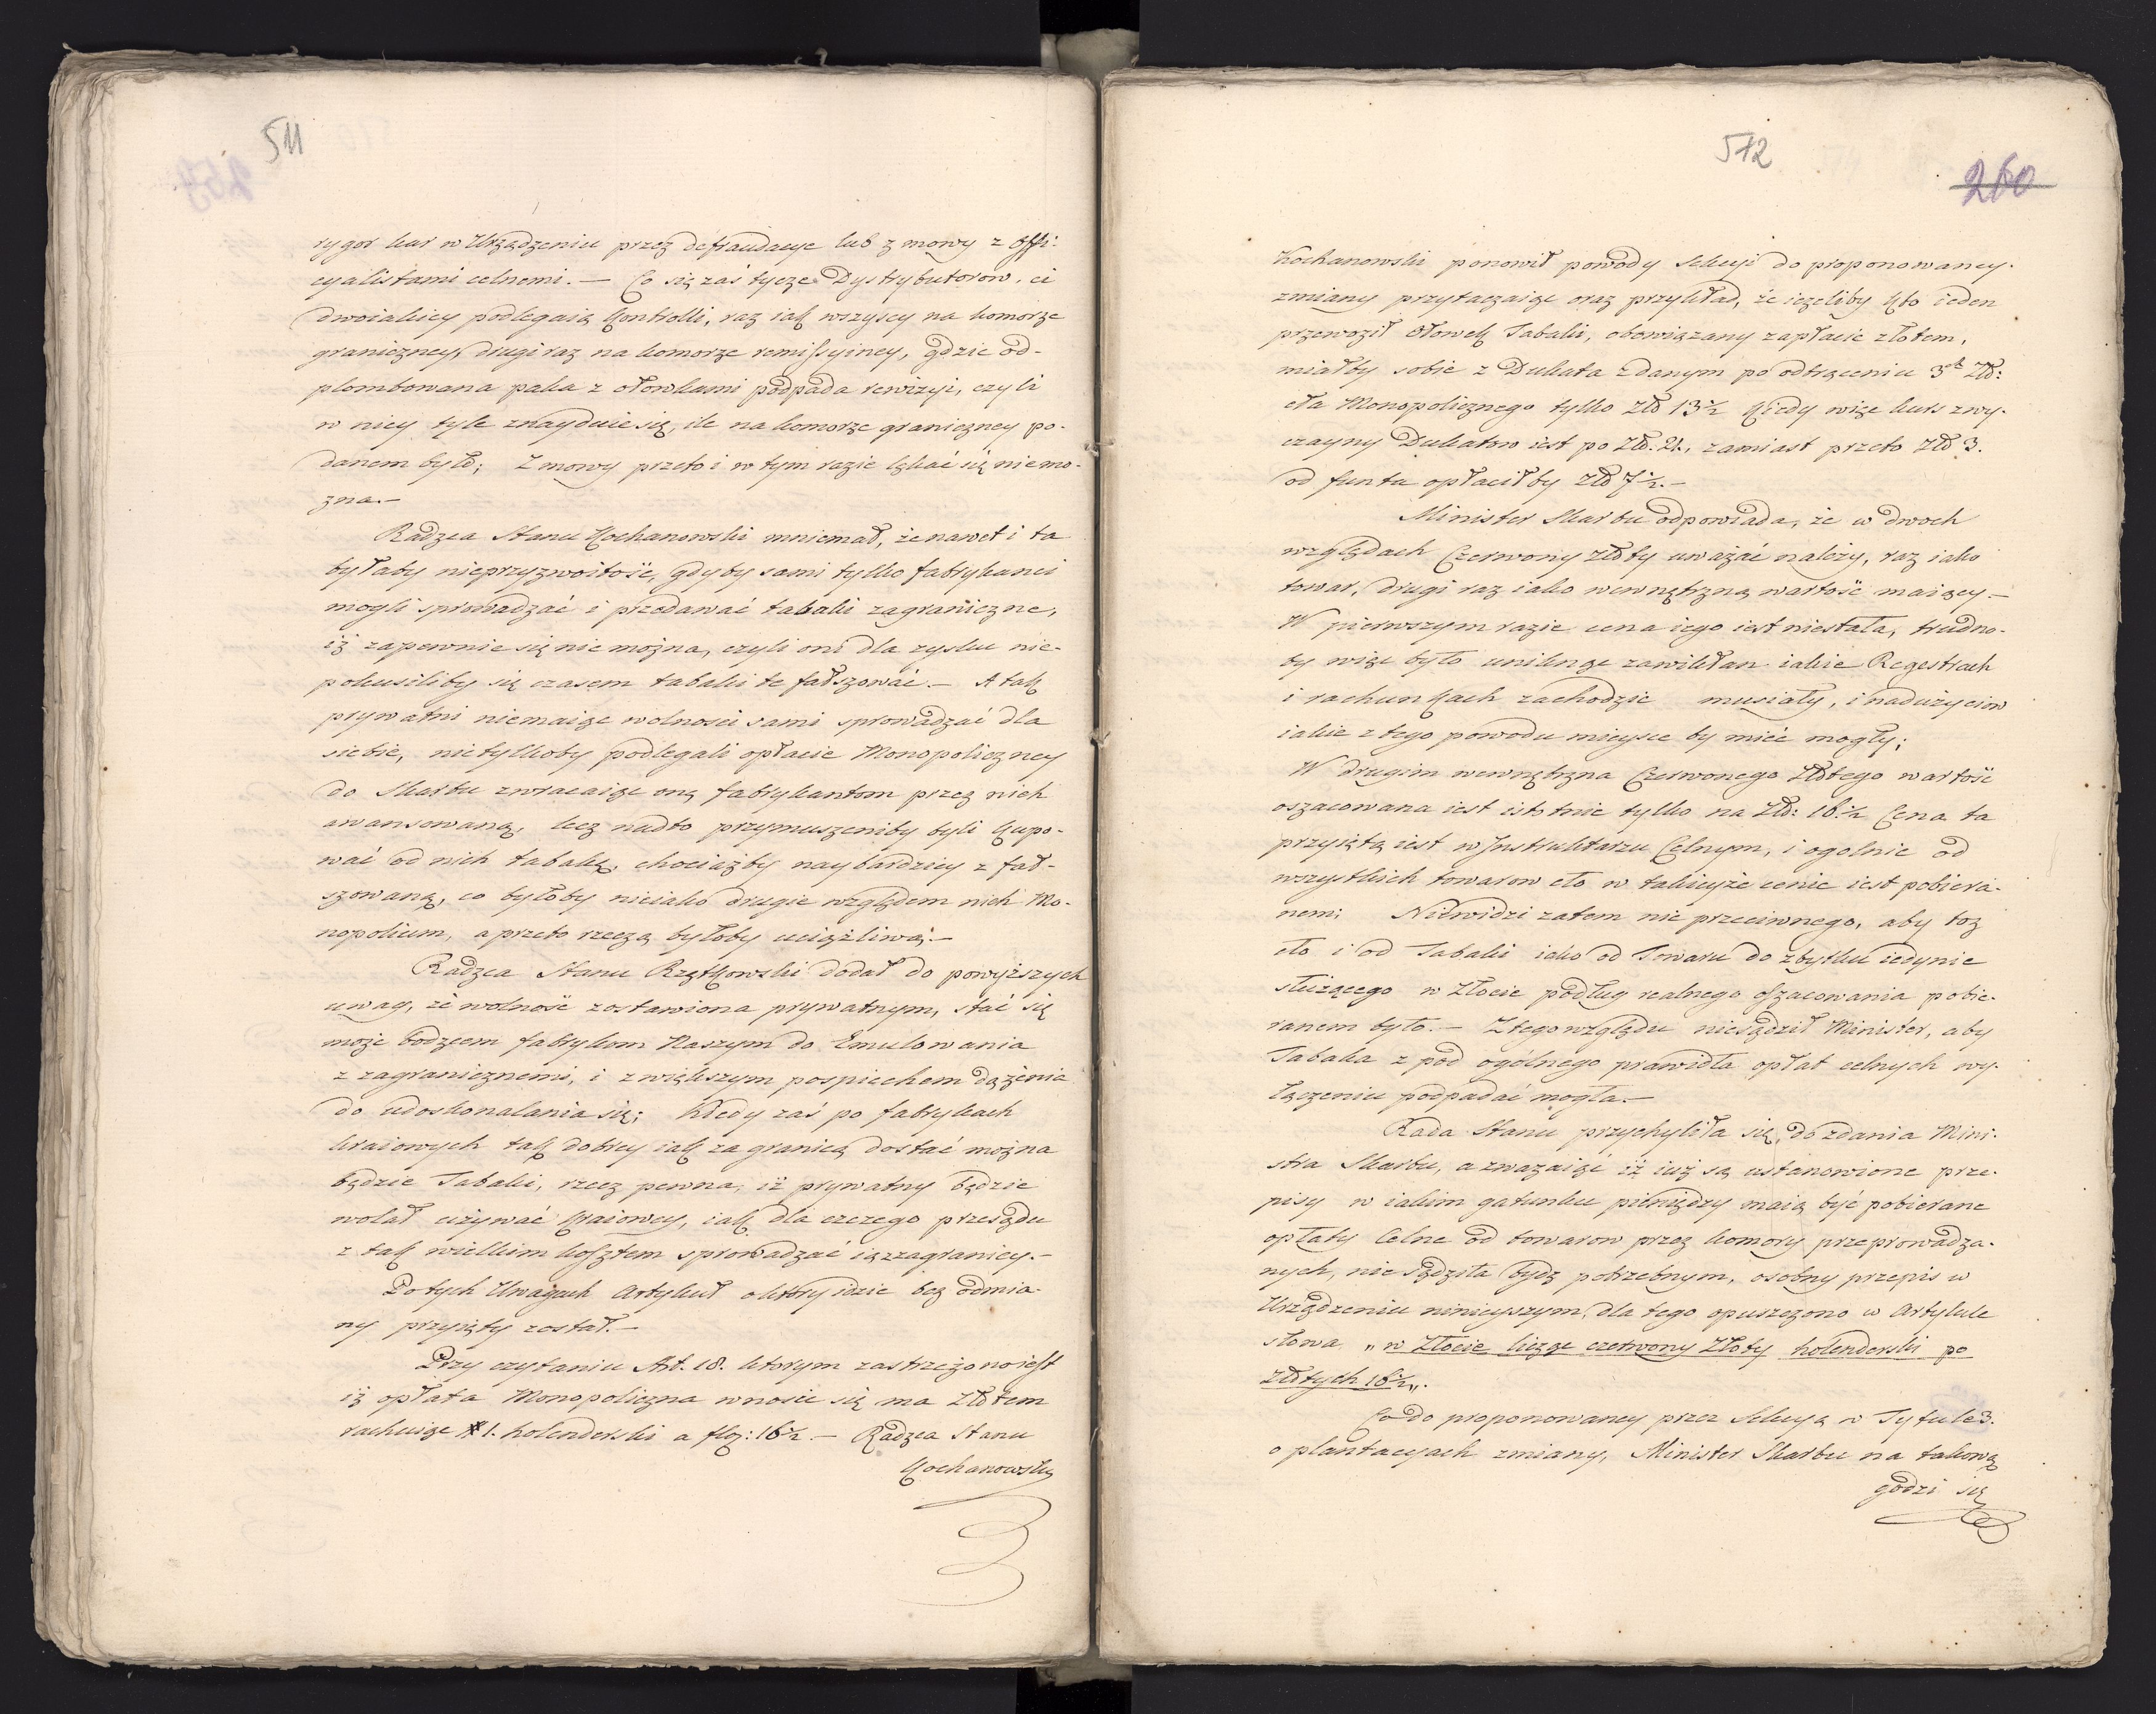 511
rygor kar w Urządzeniu przez defraudacye lub zmowy z Offi-
cyalistami celnemi. — Co się zaś tycze Dystrybutorow, ci
dwoiakiey podlegaią Kontrolli, raz iak wszyscy na komorze
graniczney, drugi raz na komorze remissyiney, gdzie od-
plombowana paka z ołowkami podpada rewizyi, czyli
w niey tyle znayduie się, ile na komorze graniczney po-
danem było; Zmowy przeto i w tym razie lękać się niemo-
zna. —
Radzca Stanu Kochanowski mniemał, że nawet i ta
byłaby nieprzyzwoitość, gdyby sami tylko fabrykanci
mogli sprowadzać i przedawać tabaki zagraniczne,
iż zapewnic się nie można, czyli oni dla zysku nie-
pokusiliby się czasem tabaki te fałszować. — A tak
prywatni niemaiąc wolności sami sprowadzać dla
siebie, nietylkoby podlegali opłacie Monopoliczney
do Skarbu zwracaiąc oną fabrykantom przez nich
awansowaną, lecz nadto przymuszeniby byli kupo-
wać od nich tabakę, chociażby naybardziey z fał-
szowaną, co byłoby nieiako drugie względem nich Mo-
nopolium, a przeto rzeczą byłoby uciążliwą. —
Radzca Stanu Rzętkowski dodał do powyższych
uwag, że wolność zostawiona prywatnym, stać się
może bodzcem fabrykom Naszym do Emulowania
z zagranicznemi, i z większym pospiechem dążenia
do udoskonalania się; Kiedy zaś po fabrykach
kraiowych tak dobrey iak za granicą dostać można
będzie Tabaki, rzecz pewna, iż prywatny będzie
wolał używać kraiowey, iak dla czczego przesądu
z tak wielkim kosztem sprowadzać ią zzagranicy. —
Po tych Uwagach Artykuł o ktory idzie bez odmia-
ny przyięty został. —
Przy czytaniu Art. 18. ktorym zastrzeżono iest
iż opłata Monopoliczna wnosić się ma Złotem
rachuiąc # 1. holenderski a flor: 16½ — Radzca Stanu
Kochanowski
512
260
Kochanowski ponowił powody Sekcyi do proponowaney
zmiany przytaczaiąc oraz przykład, że ieżeliby kto ieden
przewoził Ołowek Tabaki, obowiązany zapłacic złotem,
miałby sobie z Dukata zdanym po odtrąceniu 3ch Zło:
cła Monopolicznego tylko Zło 13½ kiedy więc kurs zwy-
czayny Dukatow iest po Zło. 21, zamiast przeto Zło 3.
od funta opłaciłby Zło 7½. —
Minister Skarbu odpowiada, że w dwoch
względach Czerwony złoty uważać należy, raz iako
towar, drugi raz iako wewnętrzną wartość maiący —
W pierwszym razie cena iego iest niestała, trudno-
by więc było uniknąc zawikłan iakie Regestrach
i rachunkach zachodzic musiały, i nadużyciow
iakie z tego powodu mieysce by mieć mogły;
W drugim wewnętrzna Czerwonego Złotego wartość
oszacowana iest istotnie tylko na Zło: 16½ Cena ta
przyięta iest w Instruktarzu Celnym, i ogolnie od
wszystkich towarow cło w takieyże cenie iest pobiera-
nem; Niewidzi zatem nic przeciwnego, aby toz
cło i od Tabaki iako od Towaru do zbytku iedynie
służącego w Złocie podług realnego oszacowania pobie-
ranem było. — Z tego względu niesądził Minister, aby
Tabaka z pod ogólnego prawidła opłat celnych wy-
łączeniu podpadać mogła. —
Rada Stanu przychyliła się do zdania Mini-
stra Skarbu, a zwazaiąć iż iuż są ustanowione prze-
pisy w iakim gatunku pieniędzy maią być pobierane
opłaty Celne od towarow przez komory przeprowadza-
nych, nie sądziła bydz potrzebnym, osobny przepis w
Urządzeniu ninieyszym, dla tego opuszczono w Artykule
słowa „w Złocie licząc czerwony Złoty holenderski po
złotych 16½„.
Co do proponowaney przez Sekcyą w Tytule 3.
o plantacyach zmiany, Minister Skarbu na takową
godzi się